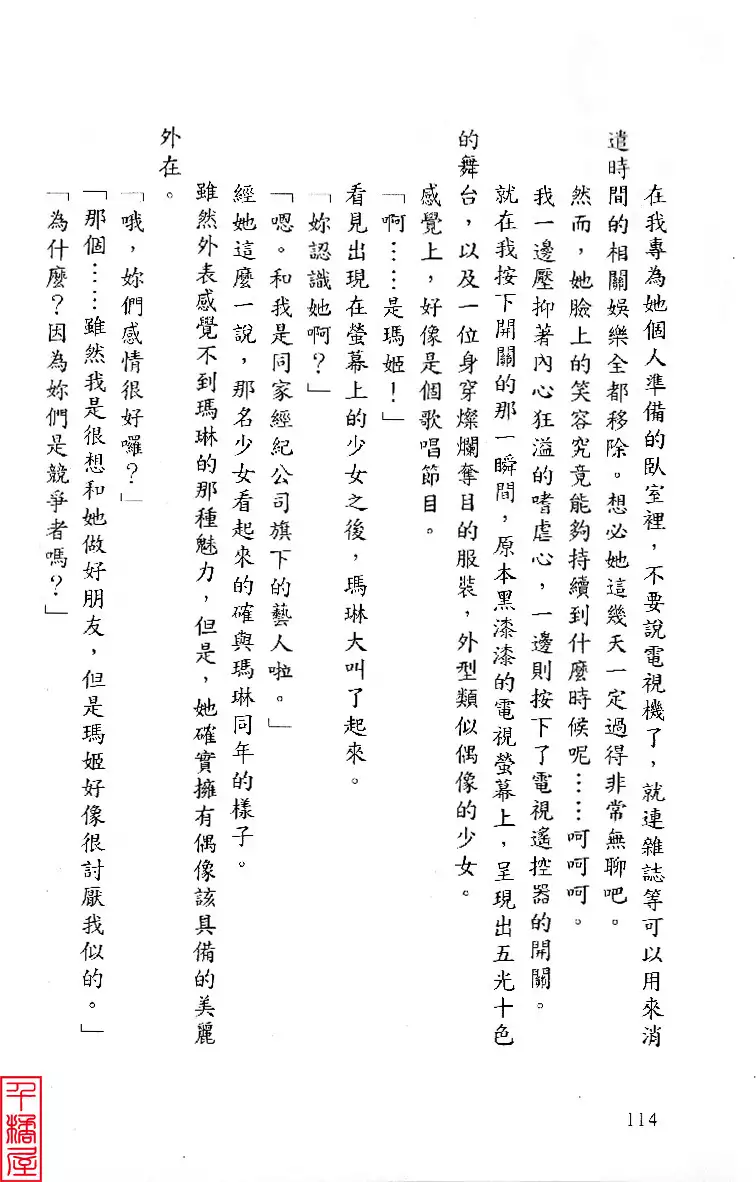 在我專為她個人準備的臥室裡，不要說電視機了，就連雜誌等可以用來消
遣時間的相關娛樂全都移除。想必她這幾天一定過得非常無聊吧。
然而，她臉上的笑容究竟能夠持續到什麼時候呢……呵呵呵。
我一邊壓抑著內心狂溢的嗜虐心，一邊則按下了電視遙控器的開關。
就在我按下開關的那一瞬間，原本黑漆漆的電視螢幕上，呈現出五光十色
的舞台，以及一位身穿燦爛奪目的服裝，外型類似偶像的少女。
感覺上，好像是個歌唱節目。
「啊……是瑪姬！」
看見出現在螢幕上的少女之後，瑪琳大叫了起來。
「妳認識她啊？」
「嗯。和我是同家經紀公司旗下的藝人啦。」
經她這麼一說，那名少女看起來的確與瑪琳同年的樣子。
雖然外表感覺不到瑪琳的那種魅力，但是，她確實擁有偶像該具備的美麗
外在。
「哦，妳們感情很好囉？」
「那個……雖然我是很想和她做好朋友，但是瑪姬好像很討厭我似的。」
「為什麼？因為妳們是競爭者嗎？」
114
千橘屋